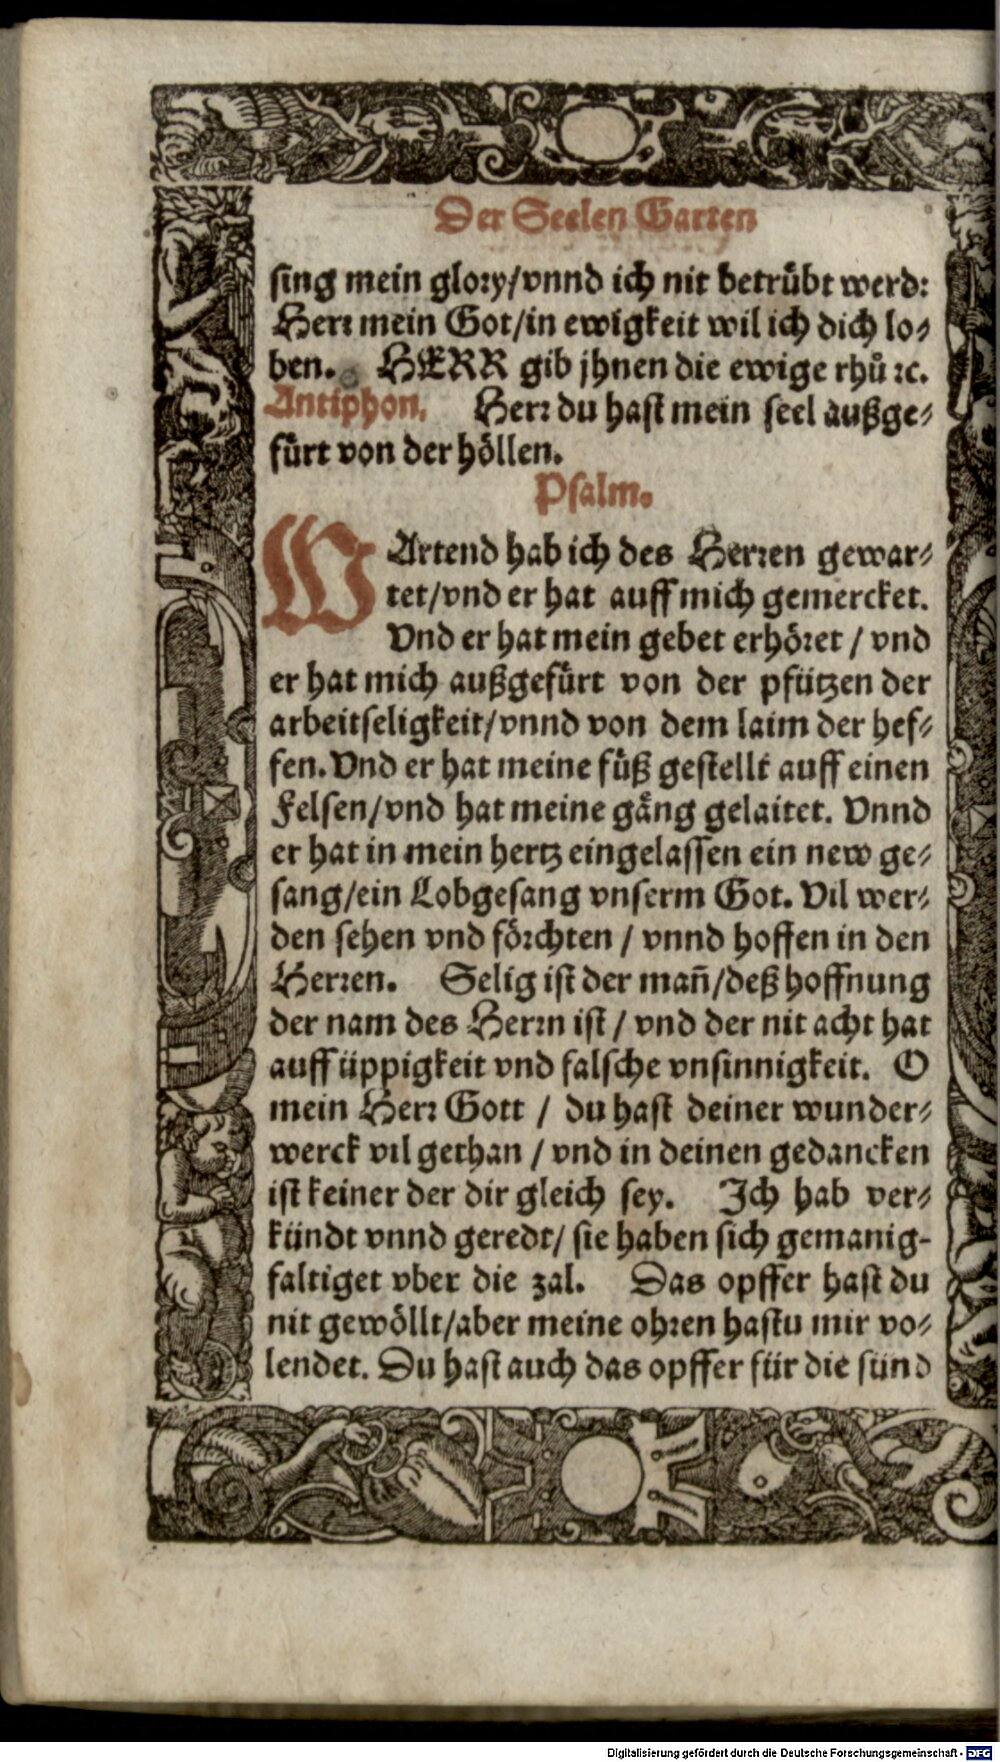 Der Seelen Garten
sing mein glory/vnnd ich nit betrübt werd:
Herr mein Got/in ewigkeit wil ich dich lo⸗
ben. HERR gib jhnen die ewige rhů ꝛc.
Antiphon. Herr du hast mein seel außge⸗
fürt von der höllen.
Psalm.
WArtend hab ich des Herren gewar⸗
tet/vnd er hat auff mich gemercket.
Vnd er hat mein gebet erhöret / vnd
er hat mich außgefürt von der pfützen der
arbeitseligkeit/vnnd von dem laim der hef⸗
fen. Vnd er hat meine füß gestellt auff einen
Felsen/vnd hat meine gäng gelaitet. Vnnd
er hat in mein hertz eingelassen ein new ge⸗
sang/ein Lobgesang vnserm Got. Vil wer⸗
den sehen vnd förchten / vnnd hoffen in den
Herren. Selig ist der mañ/deß hoffnung
der nam des Herrn ist / vnd der nit acht hat
auff üppigkeit vnd falsche vnsinnigkeit. O
mein Herr Gott / du hast deiner wunder⸗
werck vil gethan / vnd in deinen gedancken
ist keiner der dir gleich sey. Ich hab ver⸗
kündt vnnd geredt/ sie haben sich gemanig-
faltiget vber die zal. Das opffer hast du
nit gewöllt/aber meine ohren hastu mir vo⸗
lendet. Du hast auch das opffer für die sünd
Digitalisierung gefördert durch die Deutsche Forschungsgemeinschaft - DFG